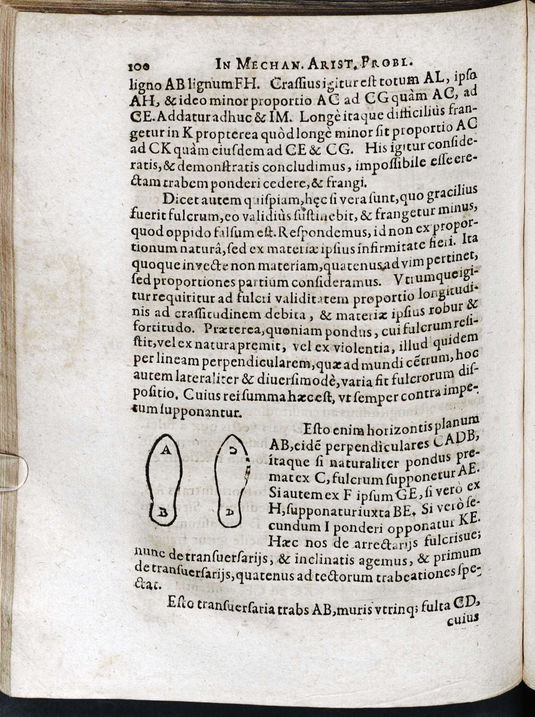 100 IN MECHAN. ARIST. PROBL.
ligno AB lignum FH. Crassius igitur est totum AL, ipso
AH, & ideo minor proportio AC ad CG quàm AC, ad
CE. Addatur adhuc & IM. Longè itaque difficilius fran-
getur in K propterea quòd longè minor sit proportio AC
ad CK quàm eiusdem ad CE & CG. His igitur conside-
ratis, & demonstratis concludimus, impossibile esse ere-
ctam trabem ponderi cedere, & frangi.
Dicet autem quispiam, hęc si vera sunt, quo gracilius
fuerit fulcrum, eo validiùs sustinebit, & frangetur minus,
quod oppido falsum est. Respondemus, id non ex propor-
tionum naturâ, sed ex materiæ ipsius infirmitate fieri. Ita
quoque in vecte non materiam, quatenus ad vim pertinet,
sed proportiones partium consideramus. Vtrumque igi-
tur requiritur ad fulcri validitatem proportio longitudi-
nis ad crassitudinem debita, & materiæ ipsius robur &
fortitudo. Præterea, quoniam pondus, cui fulcrum resi-
stit, vel ex natura premit, vel ex violentia, illud quidem
per lineam perpendicularem, quæ ad mundi cẽtrum, hoc
autem lateraliter & diuersimodè, varia fit fulcrorum dis-
positio. Cuius rei summa hæc est, vt semper contra impe-
tum supponantur.
Esto enim horizontis planum
AB, eidẽ perpendiculares CADB,
itaque si naturaliter pondus pre-
mat ex C, fulcrum supponetur AE.
Si autem ex F ipsum GE, si verò ex
H, supponatur iuxta BE. Si verò se-
cundum I ponderi opponatur KE.
Hæc nos de arrectarijs fulcrisue;
nunc de transuersarijs, & inclinatis agemus, & primum
de transuersarijs, quatenus ad tectorum trabeationes spe-
ctat.
Esto transuersaria trabs AB, muris vtrinq; fulta CD,
cuius
A
B
C
D